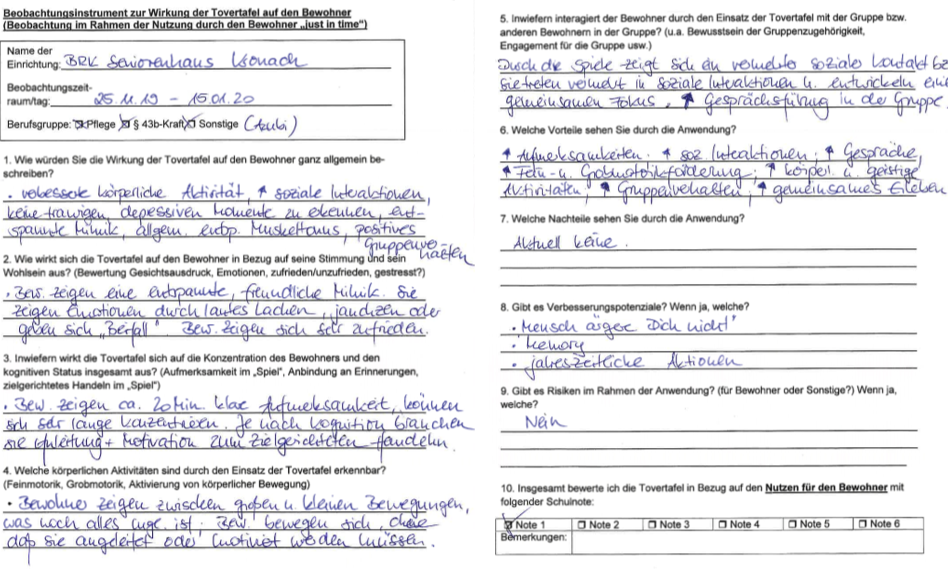 Beobachtungsinstrument zur Wirkung der Tovertafel auf den Bewohner
(Beobachtung im Rahmen der Nutzung durch den Bewohner „just in time")
Name der
Einrichtung: BRK Seniorenhaus Usonach
Beobachtungszeit-
raum/tag: 25.11.19 – 15.01.20
Berufsgruppe: ☒ Pflege ☒ § 43b-Kraft ☒ Sonstige (Azubi)
1. Wie würden Sie die Wirkung der Tovertafel auf den Bewohner ganz allgemein be-
schreiben?
• verbesserte körperliche Aktivität, ↑ soziale Interaktionen,
keine traurigen, depressiven Momente zu erkennen, ent-
spannte Mimik, allgem. entsp. Muskeltonus, positives
Gruppenverhalten
2. Wie wirkt sich die Tovertafel auf den Bewohner in Bezug auf seine Stimmung und sein
Wohlsein aus? (Bewertung Gesichtsausdruck, Emotionen, zufrieden/unzufrieden, gestresst?)
• Bew. zeigen eine entspannte, freundliche Mimik. Sie
zeigen Emotionen durch lautes Lachen, jauchzen oder
geben sich „Beifall". Bew. zeigen sich sehr zufrieden.
3. Inwiefern wirkt die Tovertafel sich auf die Konzentration des Bewohners und den
kognitiven Status insgesamt aus? (Aufmerksamkeit im „Spiel", Anbindung an Erinnerungen,
zielgerichtetes Handeln im „Spiel")
• Bew. zeigen ca. 20 Min. klare Aufmerksamkeit, können
sich sehr lange konzentrieren. Je nach Kognition brauchen
sie Anleitung + Motivation zum zielgerichteten Handeln.
4. Welche körperlichen Aktivitäten sind durch den Einsatz der Tovertafel erkennbar?
(Feinmotorik, Grobmotorik, Aktivierung von körperlicher Bewegung)
• Bewohner zeigen zwischen großen u. kleinen Bewegungen,
was noch alles mgl. ist. Bew. bewegen sich, ohne
daß sie angeleitet oder motiviert werden müssen.
5. Inwiefern interagiert der Bewohner durch den Einsatz der Tovertafel mit der Gruppe bzw.
anderen Bewohnern in der Gruppe? (u.a. Bewusstsein der Gruppenzugehörigkeit,
Engagement für die Gruppe usw.)
Durch die Spiele zeigt sich ein vermehrter sozialer Kontakt
Sie treten vermehrt in soziale Interaktionen u. entwickeln
gemeinsamen Fokus, ↑ Gesprächsführung in der Gruppe.
6. Welche Vorteile sehen Sie durch die Anwendung?
↑ Aufmerksamkeiten, ↑ soz. Interaktionen, ↑ Gespräche,
↑ Fein- u. Grobmotorikförderung, ↑ körperl. u. geistige
Aktivitäten, ↑ Gruppenverhalten, ↑ gemeinsames Erleben
7. Welche Nachteile sehen Sie durch die Anwendung?
Aktuell keine.
8. Gibt es Verbesserungspotenziale? Wenn ja, welche?
• „Mensch ärgere Dich nicht"
• Memory
• jahreszeitliche Aktionen
9. Gibt es Risiken im Rahmen der Anwendung? (für Bewohner oder Sonstige?) Wenn ja,
welche?
Nein
10. Insgesamt bewerte ich die Tovertafel in Bezug auf den Nutzen für den Bewohner mit
folgender Schulnote:
☒ Note 1 ☐ Note 2 ☐ Note 3 ☐ Note 4 ☐ Note 5 ☐ Note 6
Bemerkungen: